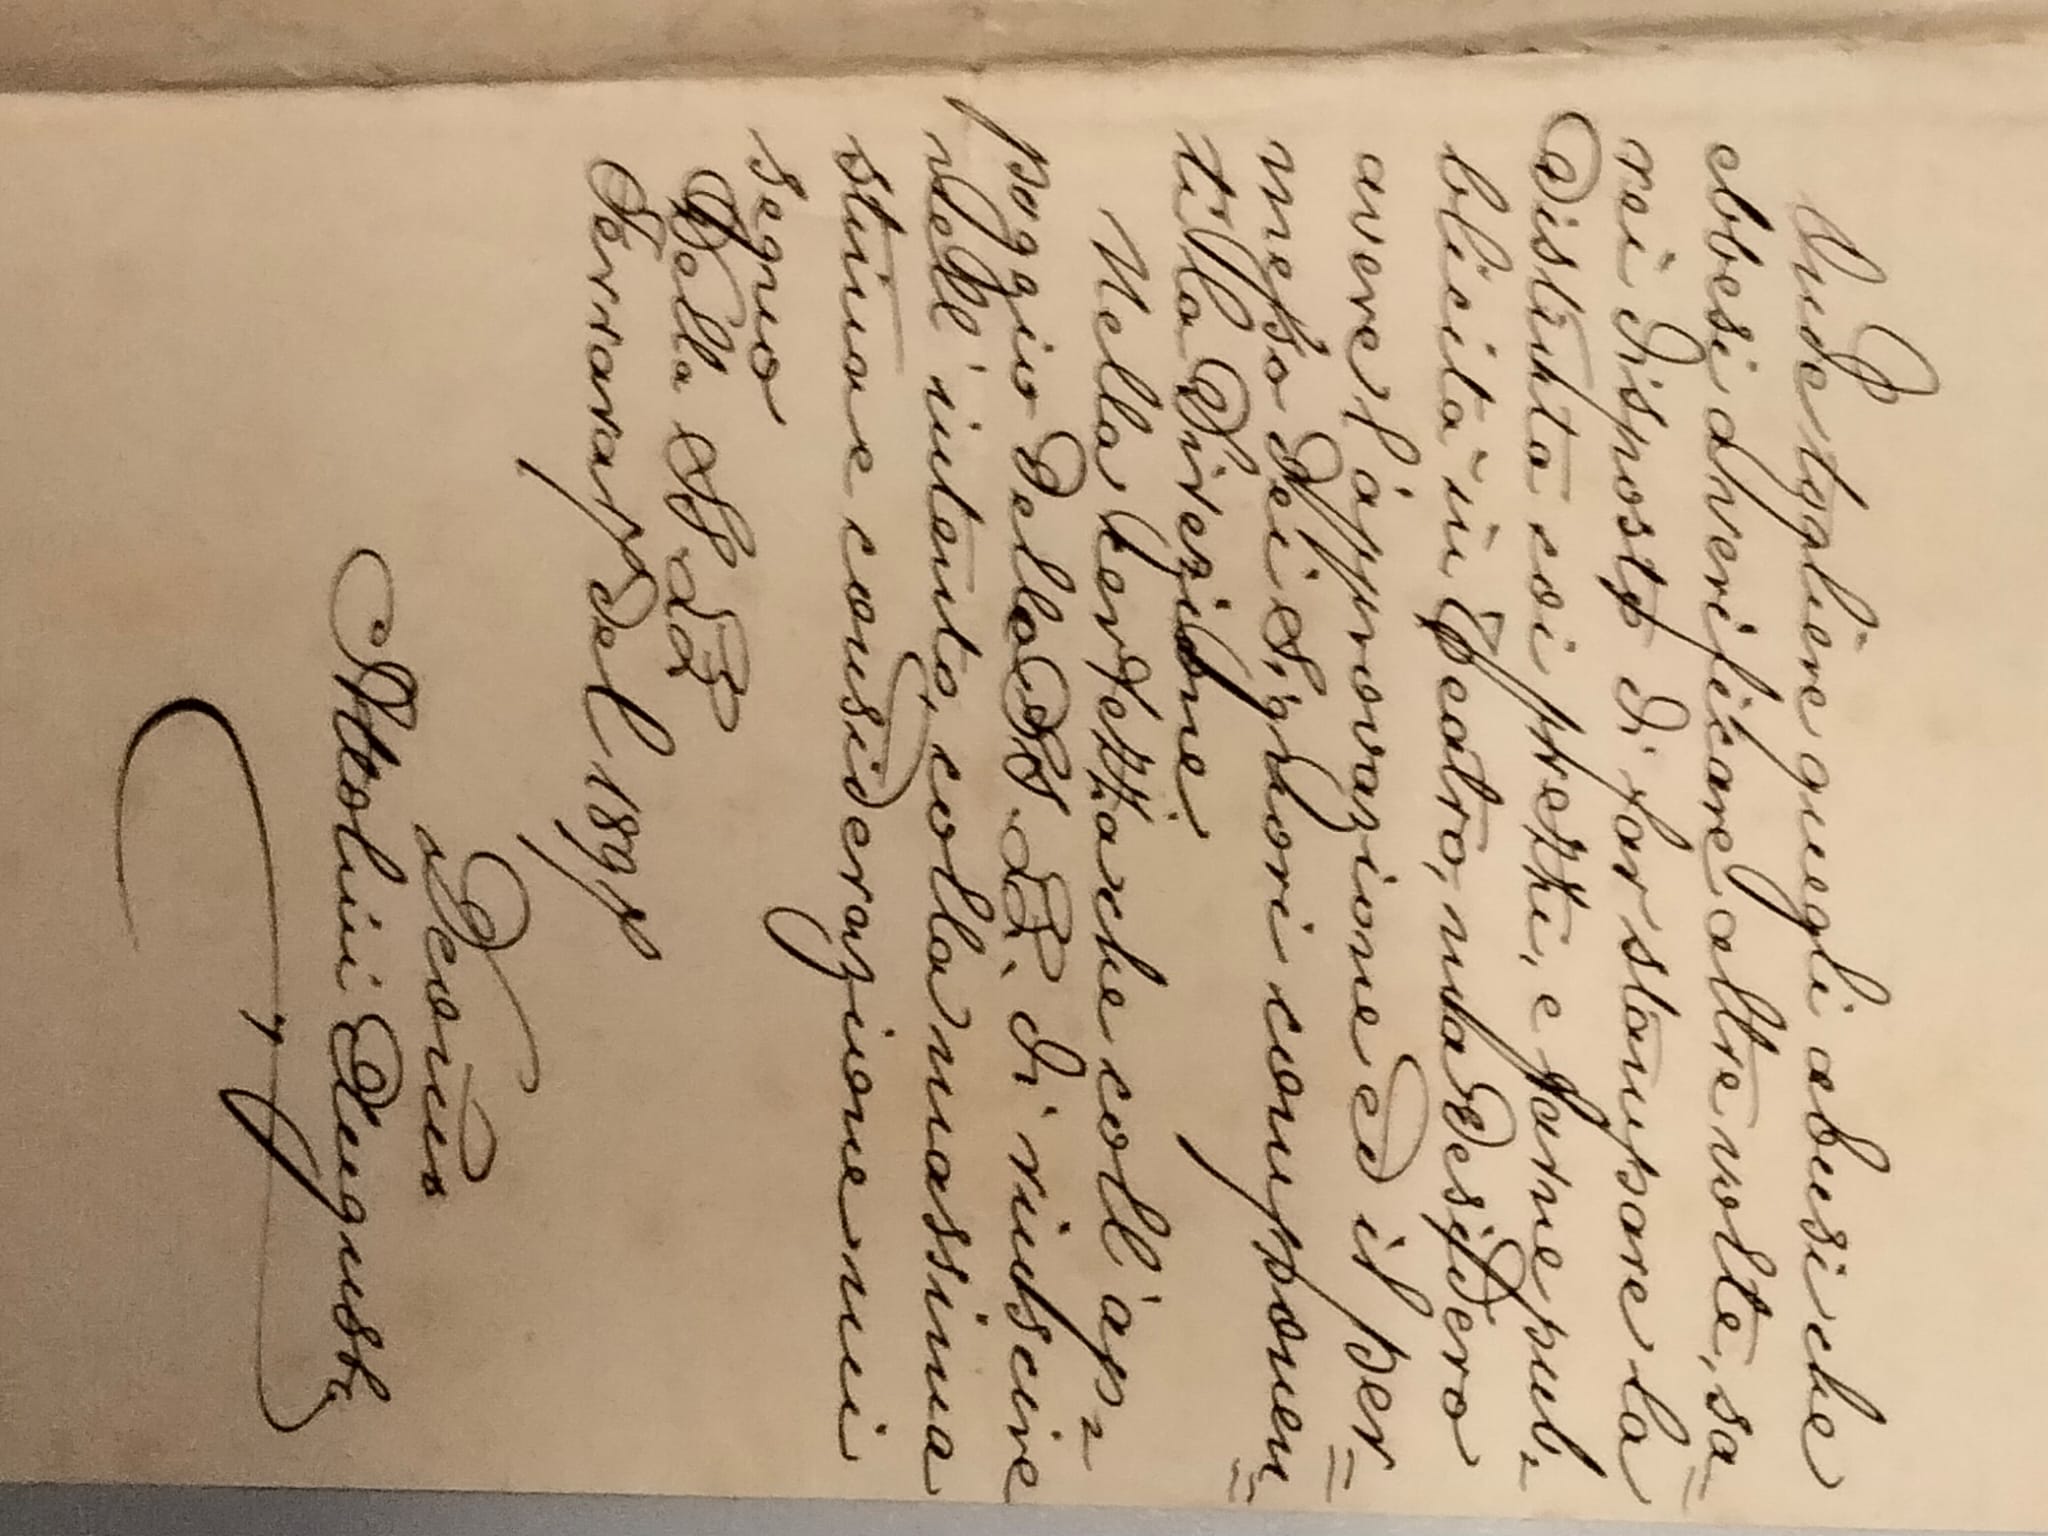 Onde togliere quegli abusi che
ebbesi a verificare altre volte, sa=
rei disposto di far stampare la
distinta coi prezzi, e farne pub=
blicità in Teatro, ma desidero
avere l'approvazione ed il per=
messo dei Signori componen=
ti la Direzione
Nella certezza che coll'ap=
poggio delle SS. LL. di riuscire
nell'intento, colla massima
stima e considerazione mi
segno
Delle SS LL
Ferrara, del 189
Devotissimo
Attolini Augusto